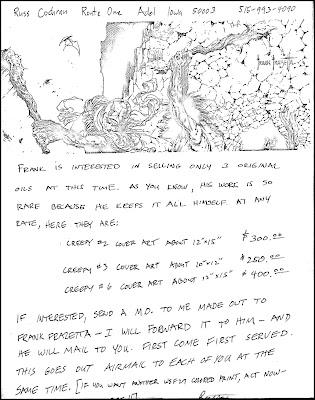 Russ Cochran Route One Adel Iowa 50003 515-993-4090
FRANK FRAZETTA
FRANK IS INTERESTED IN SELLING ONLY 3 ORIGINAL
OILS AT THIS TIME. AS YOU KNOW, HIS WORK IS SO
RARE BECAUSE HE KEEPS IT ALL HIMSELF. AT ANY
RATE, HERE THEY ARE:
CREEPY #2 COVER ART ABOUT 12"x15" $300.00
CREEPY #3 COVER ART ABOUT 10"x12" $250.00
CREEPY #6 COVER ART ABOUT 12"x15" $400.00
IF INTERESTED, SEND A M.O. TO ME MADE OUT TO
FRANK FRAZETTA - I WILL FORWARD IT TO HIM - AND
HE WILL MAIL TO YOU. FIRST COME FIRST SERVED.
THIS GOES OUT AIRMAIL TO EACH OF YOU AT THE
SAME TIME. [IF YOU WANT ANOTHER COLORED PRINT, ACT NOW-